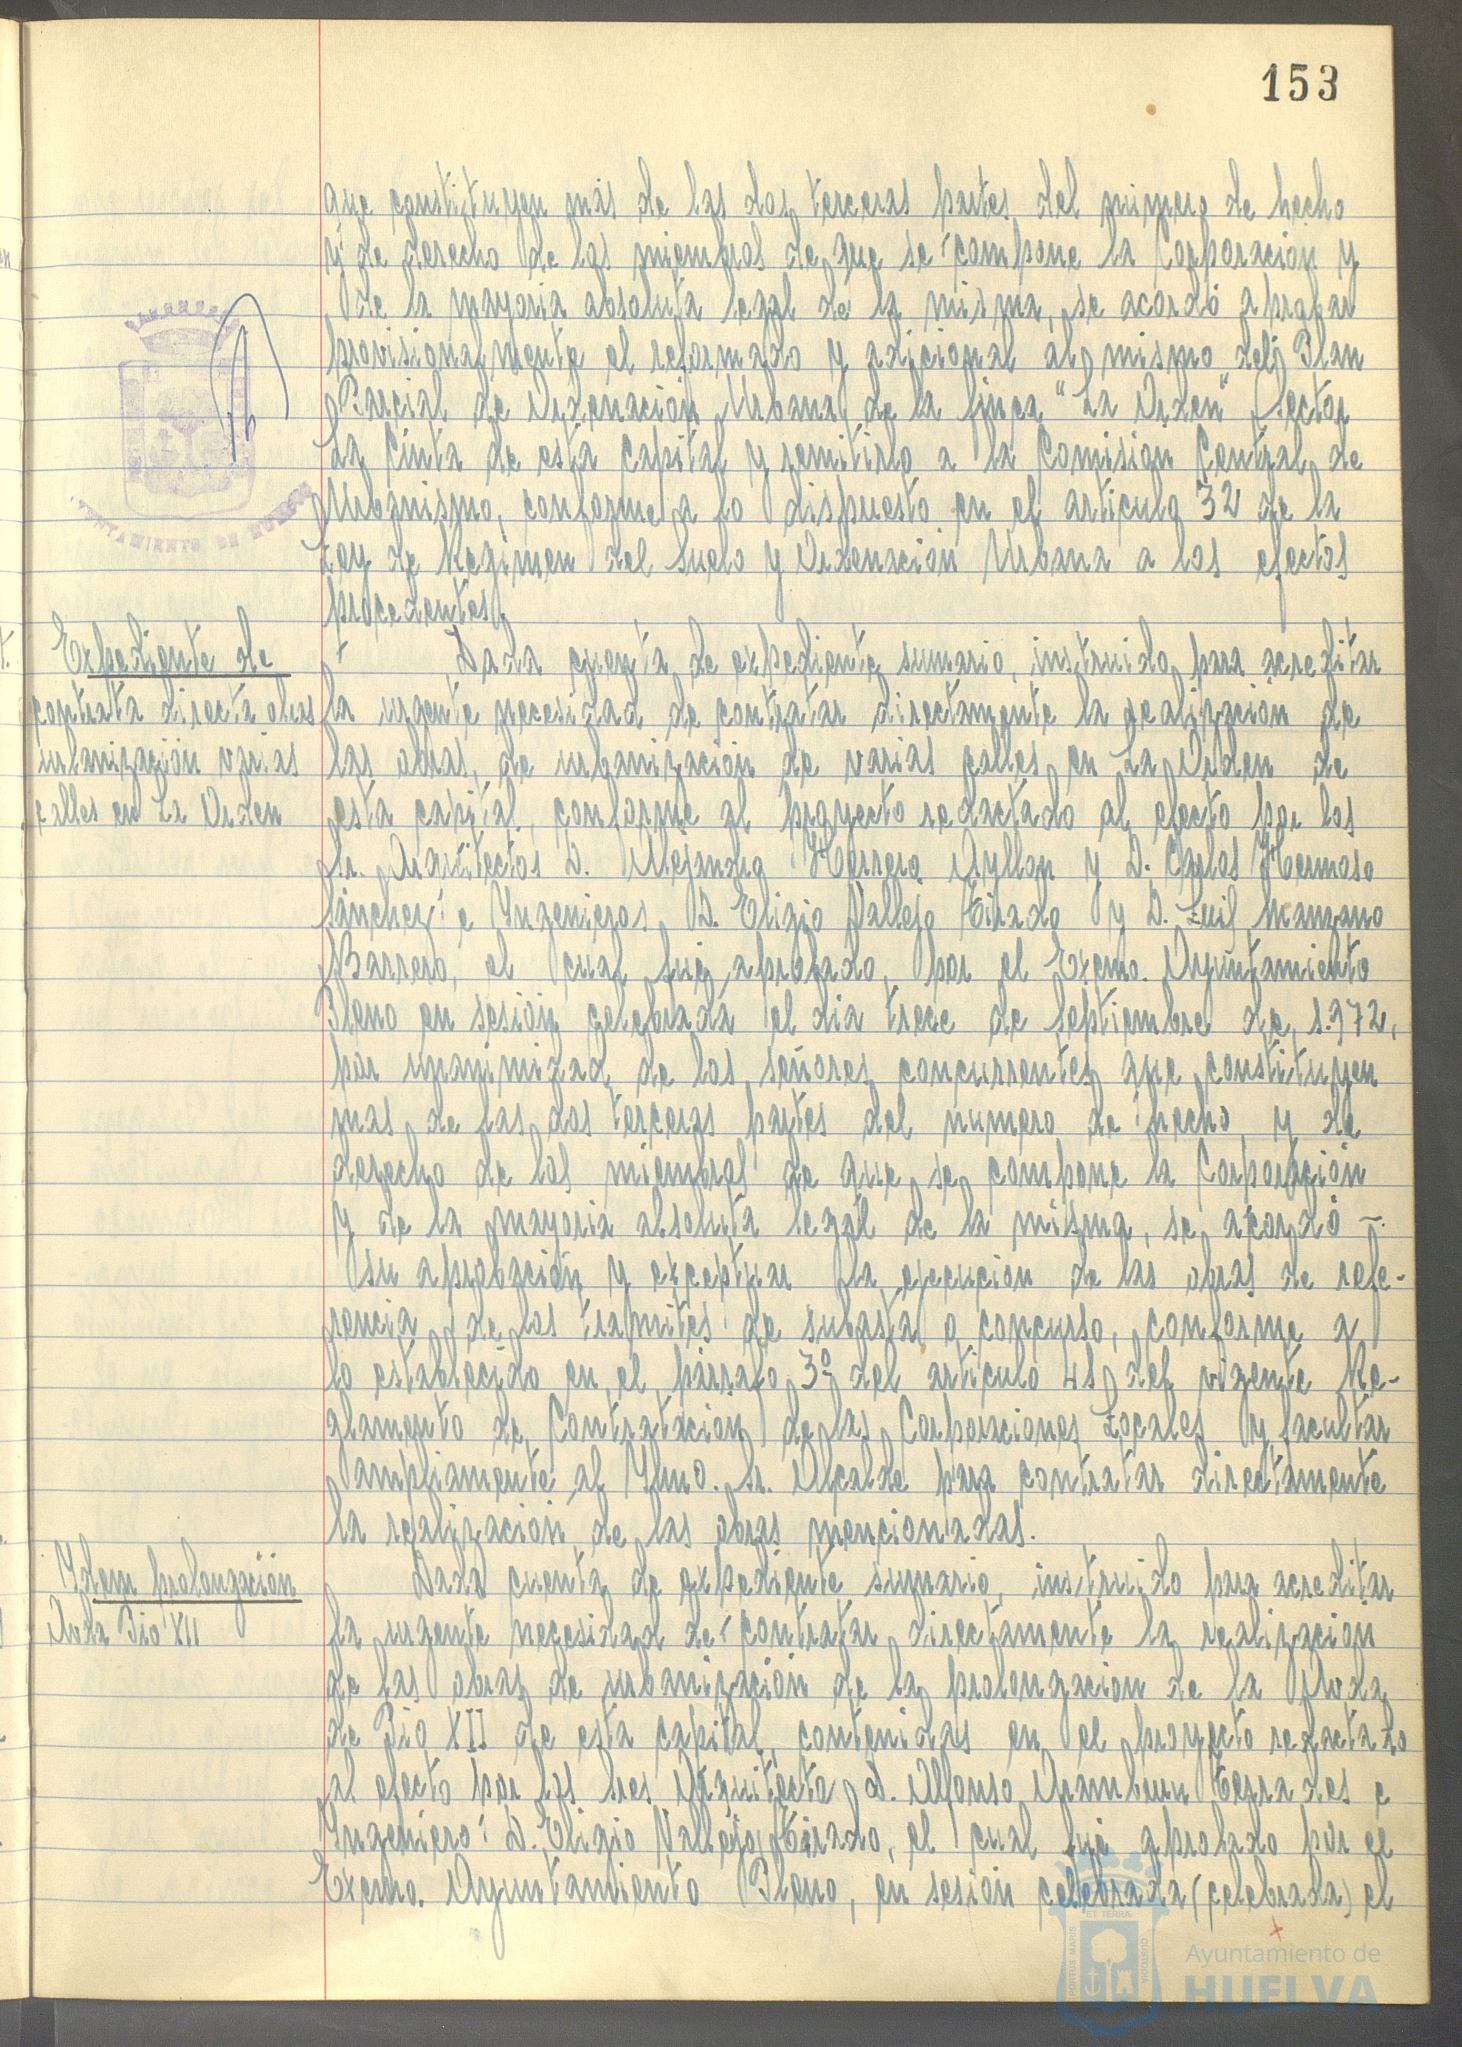 153
que constituyen más de las dos terceras partes del número de hecho
y de derecho de los miembros de que se compone la Corporación y
de la mayoria absoluta legal de la misma, se acordó aprobar
provisionalmente el reformado y adicional al mismo del Plan
Parcial de Ordenación Urbana de la finca "La Orden" Sector
La Cinta de esta capital y remitirlo a la Comisión Central de
Urbanismo, conforme a lo dispuesto en el articulo 32 de la
Ley de Regimen del Suelo y Ordenación Urbana a los efectos
procedentes.
AYUNTAMIENTO DE HUELVA
Expediente de
contrata directa obras
urbanización varias
calles en La Orden
Dada cuenta de expediente sumario, instruido para acreditar
la urgente necesidad de contratar directamente la realización de
las obras, de urbanización de varias calles en La Orden de
esta capital, conforme al proyecto redactado al efecto por los
Sr. Arquitectos D. Alejandro Herrero Ayllon y D. Carlos Hermoso
Sánchez e Ingenieros D. Eligio Vallejo Tirado y D. Luis Manzano
Barrero, el cual fué aprobado, por el Excmo. Ayuntamiento
Pleno en sesión celebrada el dia trece de Septiembre de 1.972,
por unanimidad de los señores concurrentes que constituyen
mas de las dos terceras partes del número de hecho y de
derecho de los miembros de que se compone la Corporación
y de la mayoria absoluta legal de la misma, se acordó -.
su aprobación y exceptuar la ejecución de las obras de refe-
rencia de los tramites de subasta o concurso, conforme a
lo establecido en el párrafo 3º del articulo 41 del vigente Re-
glamento de Contratación de las Corporaciones Locales y facultar
ampliamente al Ylmo. Sr. Alcalde para contratar directamente
la realización de las obras mencionadas.
Ydem prolongación
Avda Pio XII
Dada cuenta de expediente sumario, instruido para acreditar
la urgente necesidad de contratar directamente la realización
de las obras de urbanización de la prolongación de la Avda
de Pio XII de esta capital, contenidas en el proyecto redactado
al efecto por los Sres Arquitecto D. Alfonso Aramburu Terrades e
Yngeniero D. Eligio Vallejo Tirado, el cual fué aprobado por el
Excmo. Ayuntamiento Pleno, en sesión celebrada (celebrada) el
PORTUS MARIS ET TERRA CUSTODIA
Ayuntamiento de
HUELVA